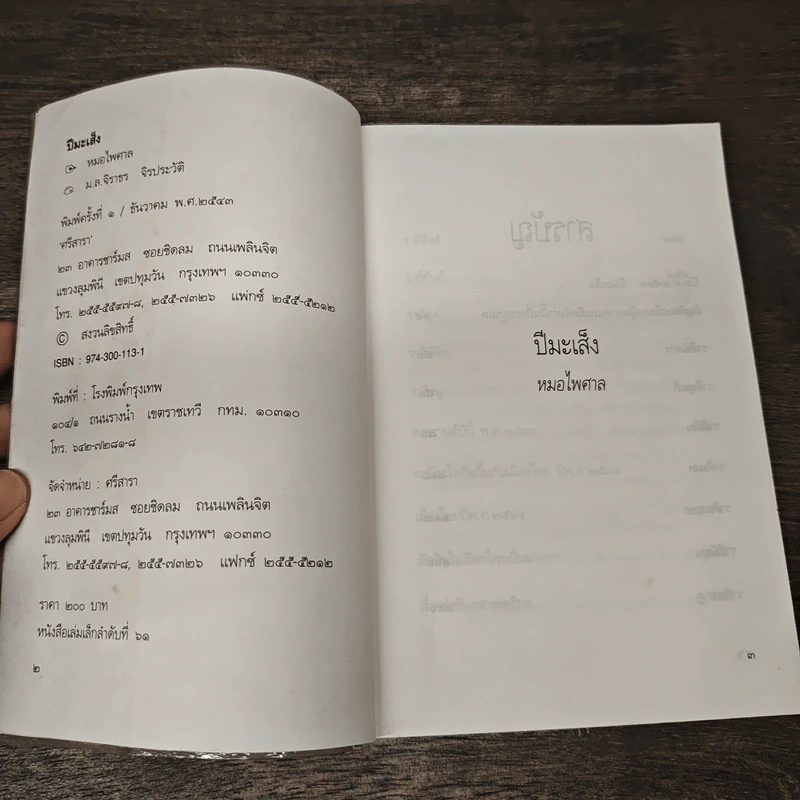 ปีมะเส็ง
หมอไพศาล
ม.ล.จิราธร จิรประวัติ
พิมพ์ครั้งที่ ๑ / ธันวาคม พ.ศ.๒๕๔๓
'ศรีสารา'
๒๓ อาคารชาร์มส ซอยชิดลม ถนนเพลินจิต
แขวงลุมพินี เขตปทุมวัน กรุงเทพฯ ๑๐๓๓๐
โทร. ๒๕๕-๕๕๙๗-๘, ๒๕๕-๗๓๒๖ แฟกซ์ ๒๕๕-๕๒๑๒
© สงวนลิขสิทธิ์
ISBN : 974-300-113-1
พิมพ์ที่ : โรงพิมพ์กรุงเทพ
๑๐๔/๑ ถนนรางน้ำ เขตราชเทวี กทม. ๑๐๓๑๐
โทร. ๖๔๒-๗๒๘๑-๘
จัดจำหน่าย : ศรีสารา
๒๓ อาคารชาร์มส ซอยชิดลม ถนนเพลินจิต
แขวงลุมพินี เขตปทุมวัน กรุงเทพฯ ๑๐๓๓๐
โทร. ๒๕๕-๕๕๙๗-๘, ๒๕๕-๗๓๒๖ แฟกซ์ ๒๕๕-๕๒๑๒
ราคา ๒๐๐ บาท
หนังสือเล่มเล็กลำดับที่ ๖๑
๒
สารบัญ
ปีมะเส็ง
หมอไพศาล
๓